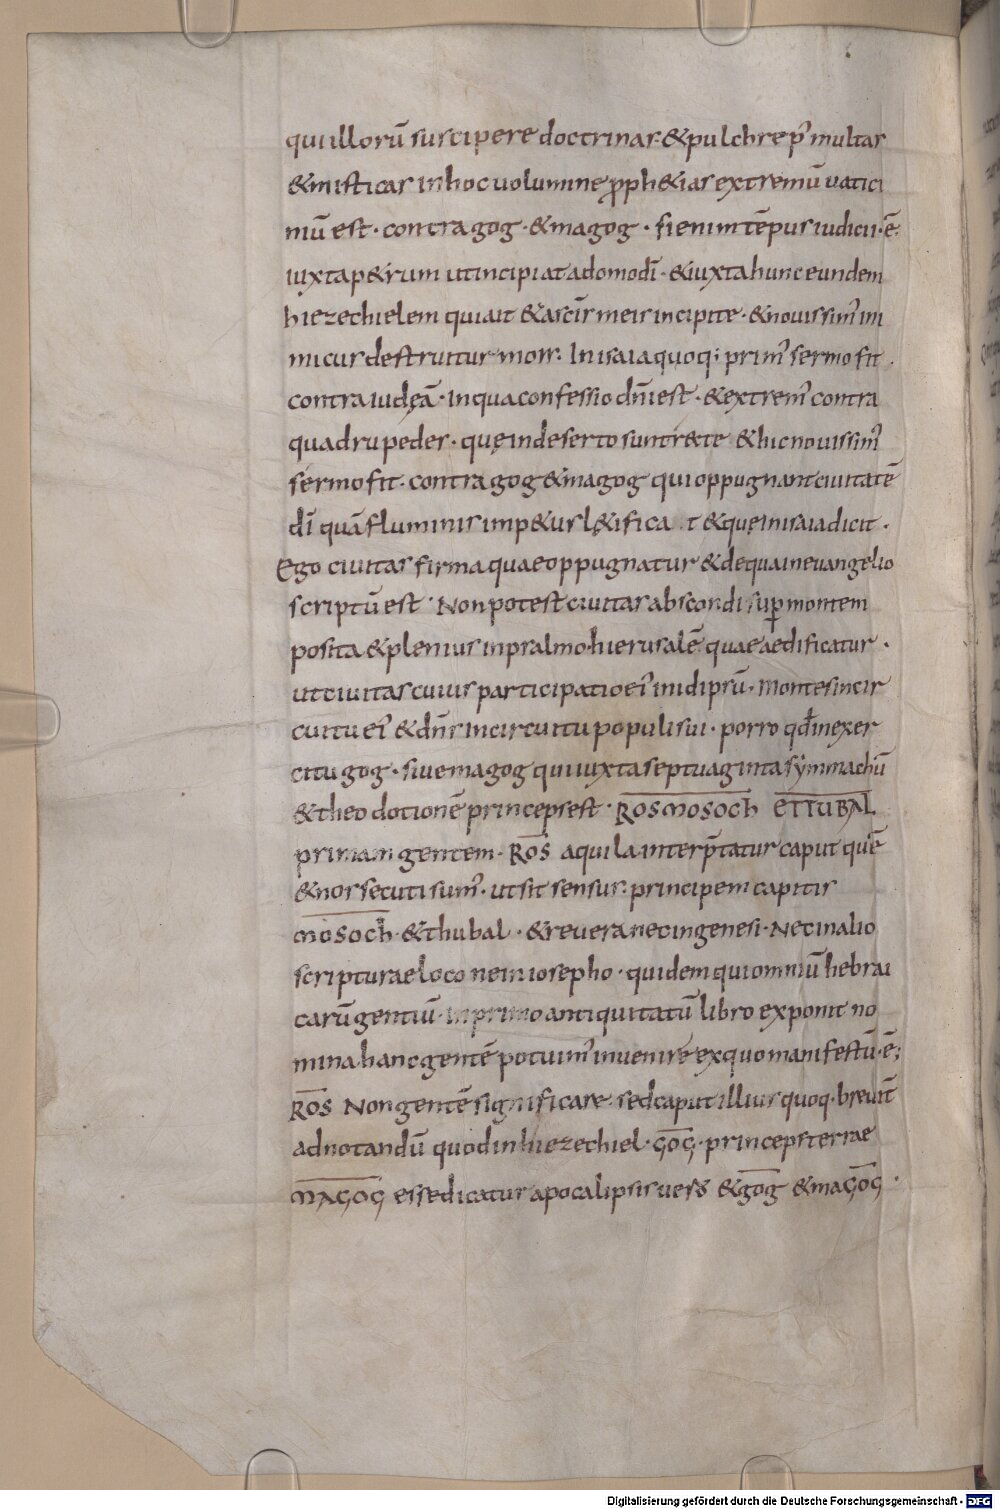 qui illorū suscipere doctrinas· & pulchre p' multas
& misticas in hoc uolumine ꝓph&ias extremū uatici
niū est· contra gog· & magog· si enim tēpus iudicii· ē·
iuxta p&rum ut incipiat a domo dī· & iuxta hunc eundem
hiezechielem qui ait & a sc̄is meis incipite· & nouissim' ini
micus destruitur mors· In isaia quoq; prim' sermo fit·
contra iudęā· in qua confessio dn̄i est· & extrem' contra
quadrupedes· quę in deserto sunt r&e & hic nouissim'
sermo fit· contra gog & magog qui oppugnant ciuitatē
dī quā fluminis imp&us l&ifica t & que in isaia dicit·
Ego ciuitas firma quae oppugnatur & de qua in euangelio
scriptū est· Non potest ciuitas abscondi suꝑ montem
posita & plenius in psalmo· hierusalē quae aedificatur·
ut ciuitas cuius participatio ei' in id ipsū· Montes in cir
cuitu ei' & dn̄s in circuitu populi sui· porro qđ in exer
citu gog· siue magog qui iuxta septuaginta sÿmmachū
& theodotionē princeps est· ROS MOSOCH ET TUBAL
primam gentem· ROS aquila interp̄tatur caput quē
& nos secuti sum'· ut sit sensus· principem capitis
MOSOCH· & thubal· & reuera nec in genesi· Nec in alio
scripturae loco ne in iosepho· quidem qui omniū hebrai
carū gentiū· in primo antiquitatū libro exponit no
mina hanc gentē potuim' inuenire ex quo manifestū· ē;
ROS Non gentē significare· sed caput illius quoq· breuit̄
adnotandū quod in hiezechiel· GOG· princeps terrae
MAGOG esse dicatur apocalipsis uero & gog & maGOG·
Digitalisierung gefördert durch die Deutsche Forschungsgemeinschaft - DFG